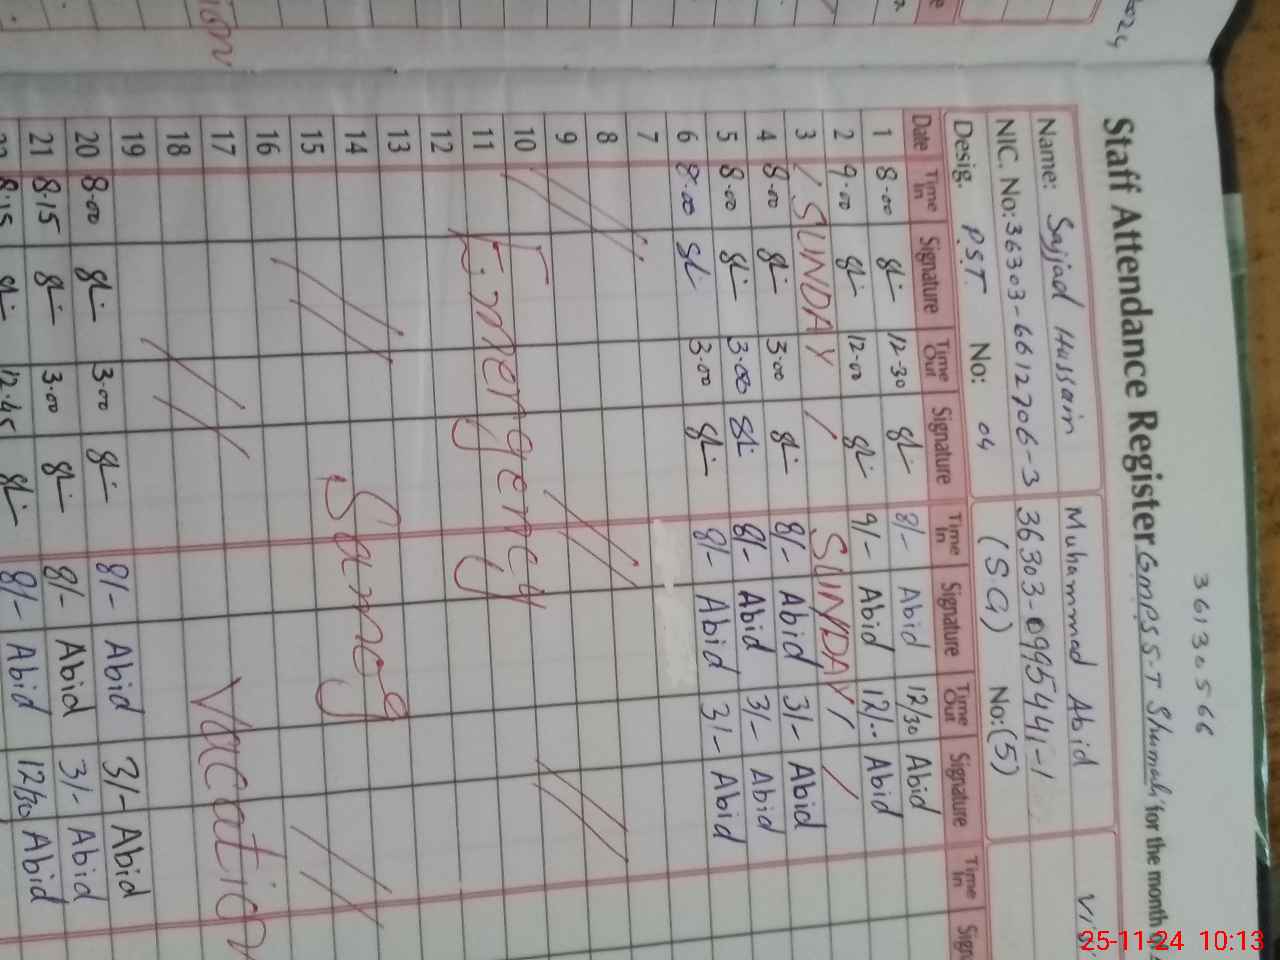 36130566
Staff Attendance Register GMPS S.T Shumali for the month of
Name: Sajjad Hussain Muhammad Abid
NIC. No: 36303-6612706-3 36303-0995441-1
Desig. PST No: 04 (S.G) No: (5)
Date Time In Signature Time Out Signature Time In Signature Time Out Signature Time In
1 8.00 12.30 8/- Abid 12/30 Abid
2 9.00 12.00 9/- Abid 12/.. Abid
3 / SUNDAY / SUNDAY / /
4 8.00 3.00 8/- Abid 3/- Abid
5 8.00 3.00 8/- Abid 3/- Abid
6 8.00 3.00 8/- Abid 3/- Abid
7
8
9
10
11 Emergency
12
13
14 Samog
15
16
17 Vacation
18
19
20 8.00 3.00 8/- Abid 3/- Abid
21 8.15 3.00 8/- Abid 3/- Abid
22 8.15 12.45 8/- Abid 12/30 Abid
25-11-24 10:13